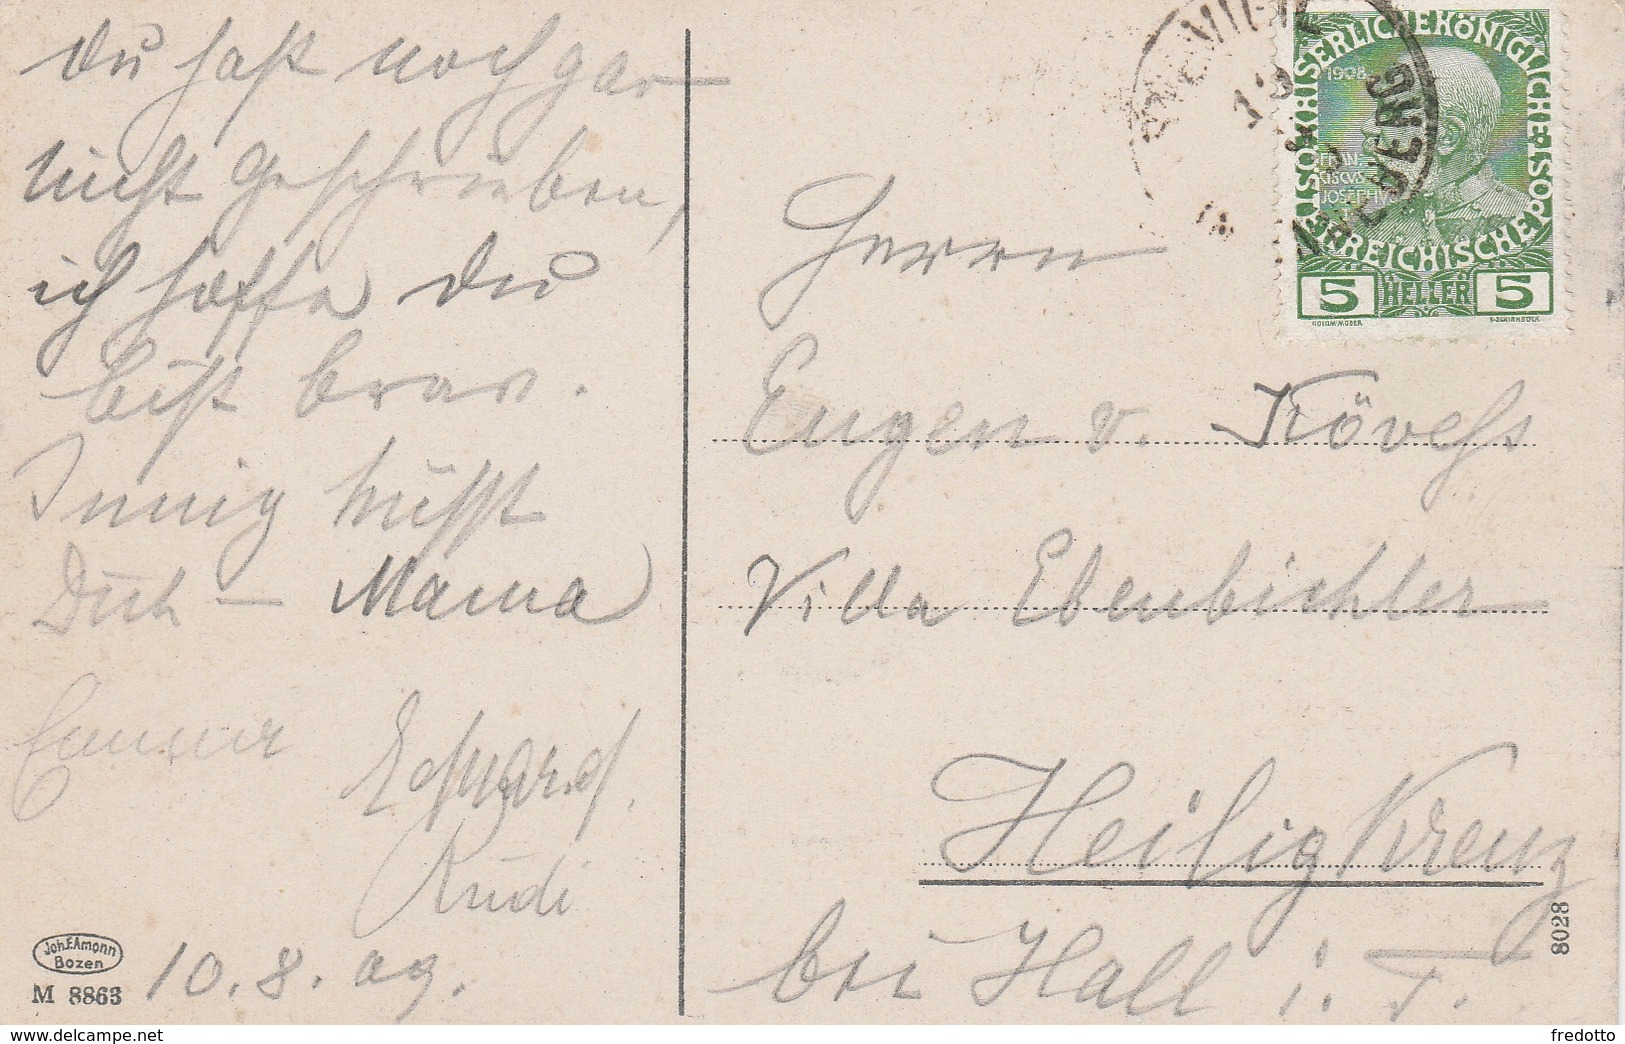 Du hast noch gar
nicht geschrieben,
ich hoffe Du
bist brav.
Innig küsst
Dich – Mama
Eduard.
Rudi
10. 8. 09.
Joh. F. Amonn
Bozen
M 8863
Herrn
Eugen v. Kövess
Villa Ebenbichler
Heiligkreuz
bei Hall i. T.
8028
KAISERLICHEKÖNIGLICHE
ÖSTERREICHISCHE POST
1908
FRAN
CISCVS
JOSEPHVS
5 HELLER 5
KOLOM. MOSER
F. SCHIRNBÖCK
delcampe.net
fredotto